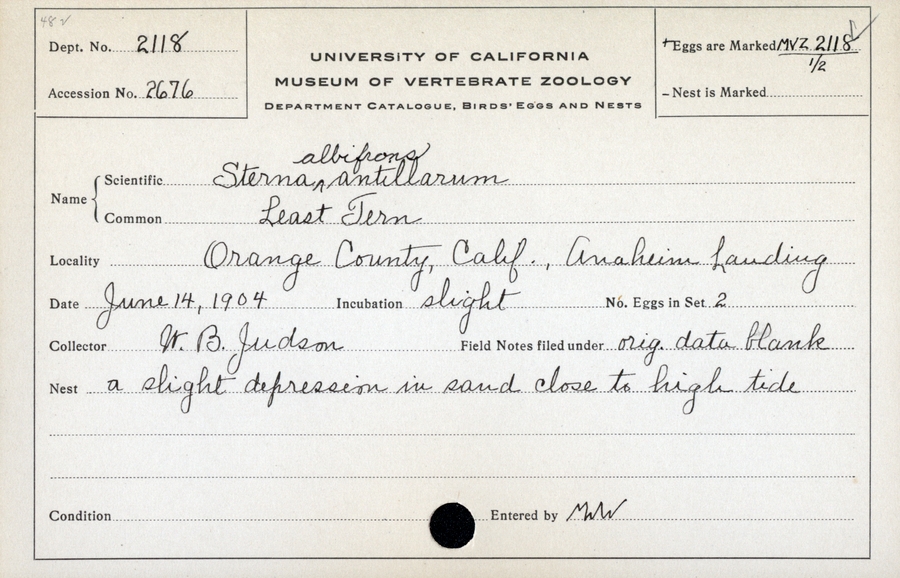 48 ✓
Dept. No. 2118
Accession No. 2676
UNIVERSITY OF CALIFORNIA
MUSEUM OF VERTEBRATE ZOOLOGY
DEPARTMENT CATALOGUE, BIRDS' EGGS AND NESTS
+ Eggs are Marked MVZ 2118
1/2
– Nest is Marked
albifrons
Name
Scientific Sterna ^ antillarum
Common Least Tern
Locality Orange County, Calif., Anaheim Landing
Date June 14, 1904 Incubation slight No. Eggs in Set 2
Collector W. B. Judson Field Notes filed under orig. data blank
Nest a slight depression in sand close to high tide
Condition Entered by